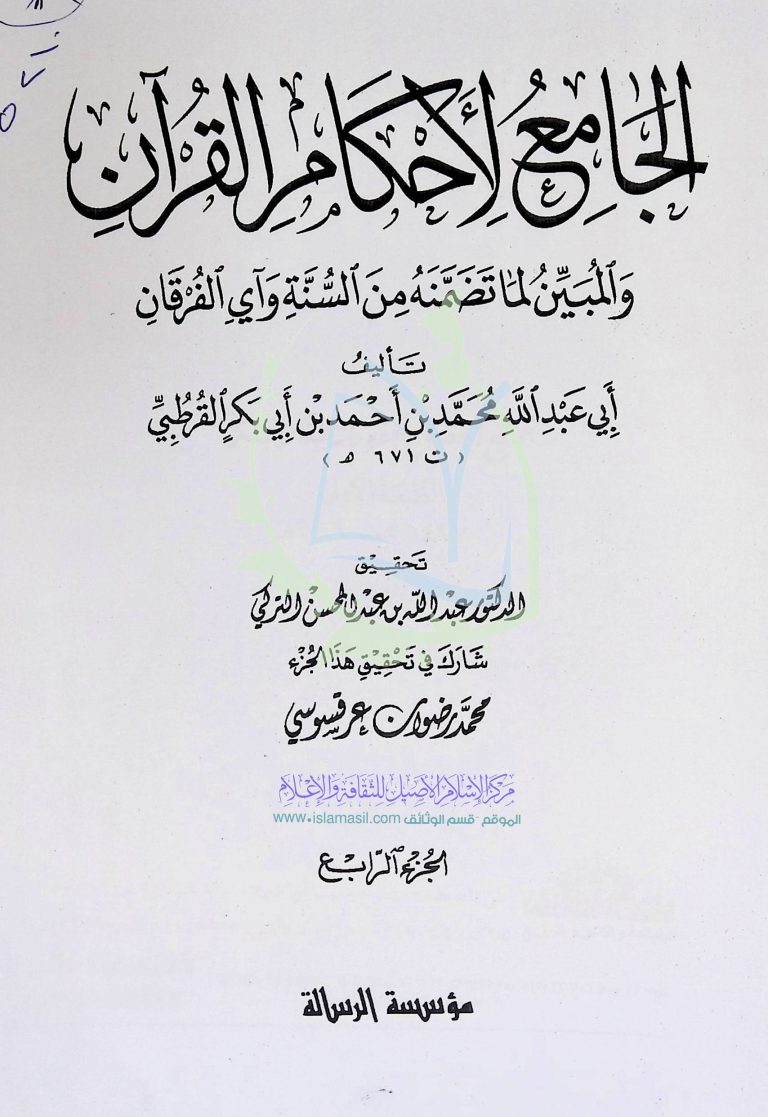 الجَامِعُ لِأَحْكَامِ القُرْآنِ
وَالمُبَيِّنُ لِمَا تَضَمَّنَهُ مِنَ السُّنَّةِ وَآيِ الفُرْقَانِ
تَأليفُ
أَبِي عَبْدِ اللَّهِ مُحَمَّدِ بْنِ أَحْمَدَ بْنِ أَبِي بَكْرٍ القُرْطُبِيِّ
( ت ٦٧١ ه )
تَحقِيق
الدكتور عبد الله بن عبد المحسن التركي
شَارَكَ فِي تَحْقِيقِ هَذَا الجُزْء
محمَّد رضوان عرقسوسي
مركز الإسلام الأصيل للثقافة والإعلام
الموقع - قسم الوثائق www.islamasil.com
الجُزءُ الرَّابِع
مؤسسة الرسالة